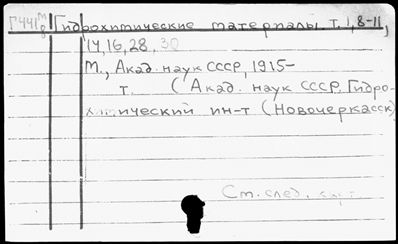 Г441 М8 Гидрохимические материалы. Т. 1, 8-11,
14, 16, 28, 30
М., Акад. наук СССР, 1915-
т. (Акад. наук СССР. Гидро-
химический ин-т (Новочеркасск)
См. след. карт.